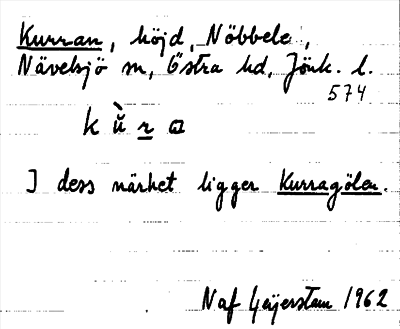 Kurran, höjd, Nöbbele,
Nävelsjö sn, Östra hd, Jönk. l.
574
k ù̆ r a
I dess närhet ligger Kurragölen.
Naf Geijerstam 1962